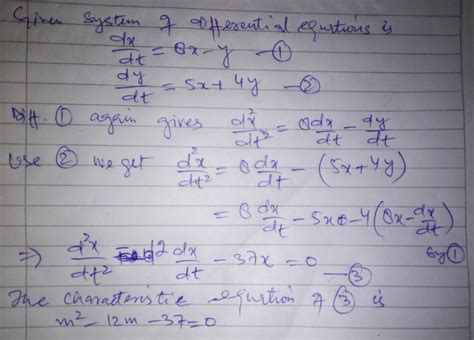 Given system of differential equations is
dx/dt = 8x - y — ①
dy/dt = 5x + 4y — ②
Diff. ① again gives d²x/dt² = 8 dx/dt - dy/dt
Use ② we get d²x/dt² = 8 dx/dt - (5x + 4y)
= 8 dx/dt - 5x - 4(8x - dx/dt)
by ①
⇒ d²x/dt² 12 dx/dt - 37x = 0 — ③
The characteristic equation of ③ is
m² - 12m - 37 = 0